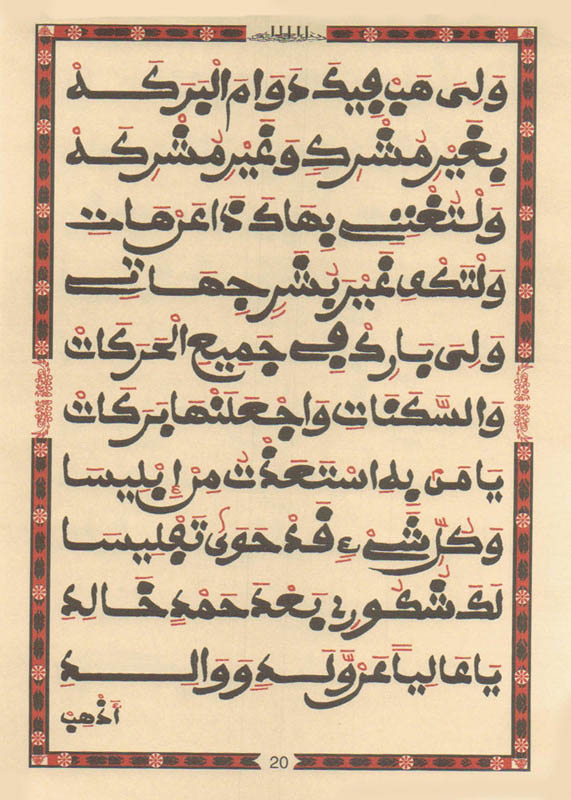 وَلِىَ هَبْ فِيكَ دَوَامَ الْبَرَكَهْ
بِغَيْرِ مُشْرِكٍ وَغَيْرِ مُشْرِكَهْ
وَلْتُغْنِنِي بِهَاكَ ذَا عَنْ هَاتِ
وَلْتَكْفِ غَيْرَ بَشَرٍ جِهَاتِي
وَلِىَ بَارِكْ فِي جَمِيعِ الْحَرَكَاتْ
وَالسَّكَنَاتِ وَاجْعَلَنْهَا بَرَكَاتْ
يَا مَنْ بِهِ اسْتَعَذْتُ مِنْ إِبْلِيسَا
وَكُلِّ شَيْءٍ قَدْ حَوَى تَفْلِيسَا
لَكَ شُكُورِي بَعْدَ حَمْدٍ خَالِدِ
يَا عَالِياً عَن وَّلَدٍ وَوَالِدِ
أَذْهِبْ
20